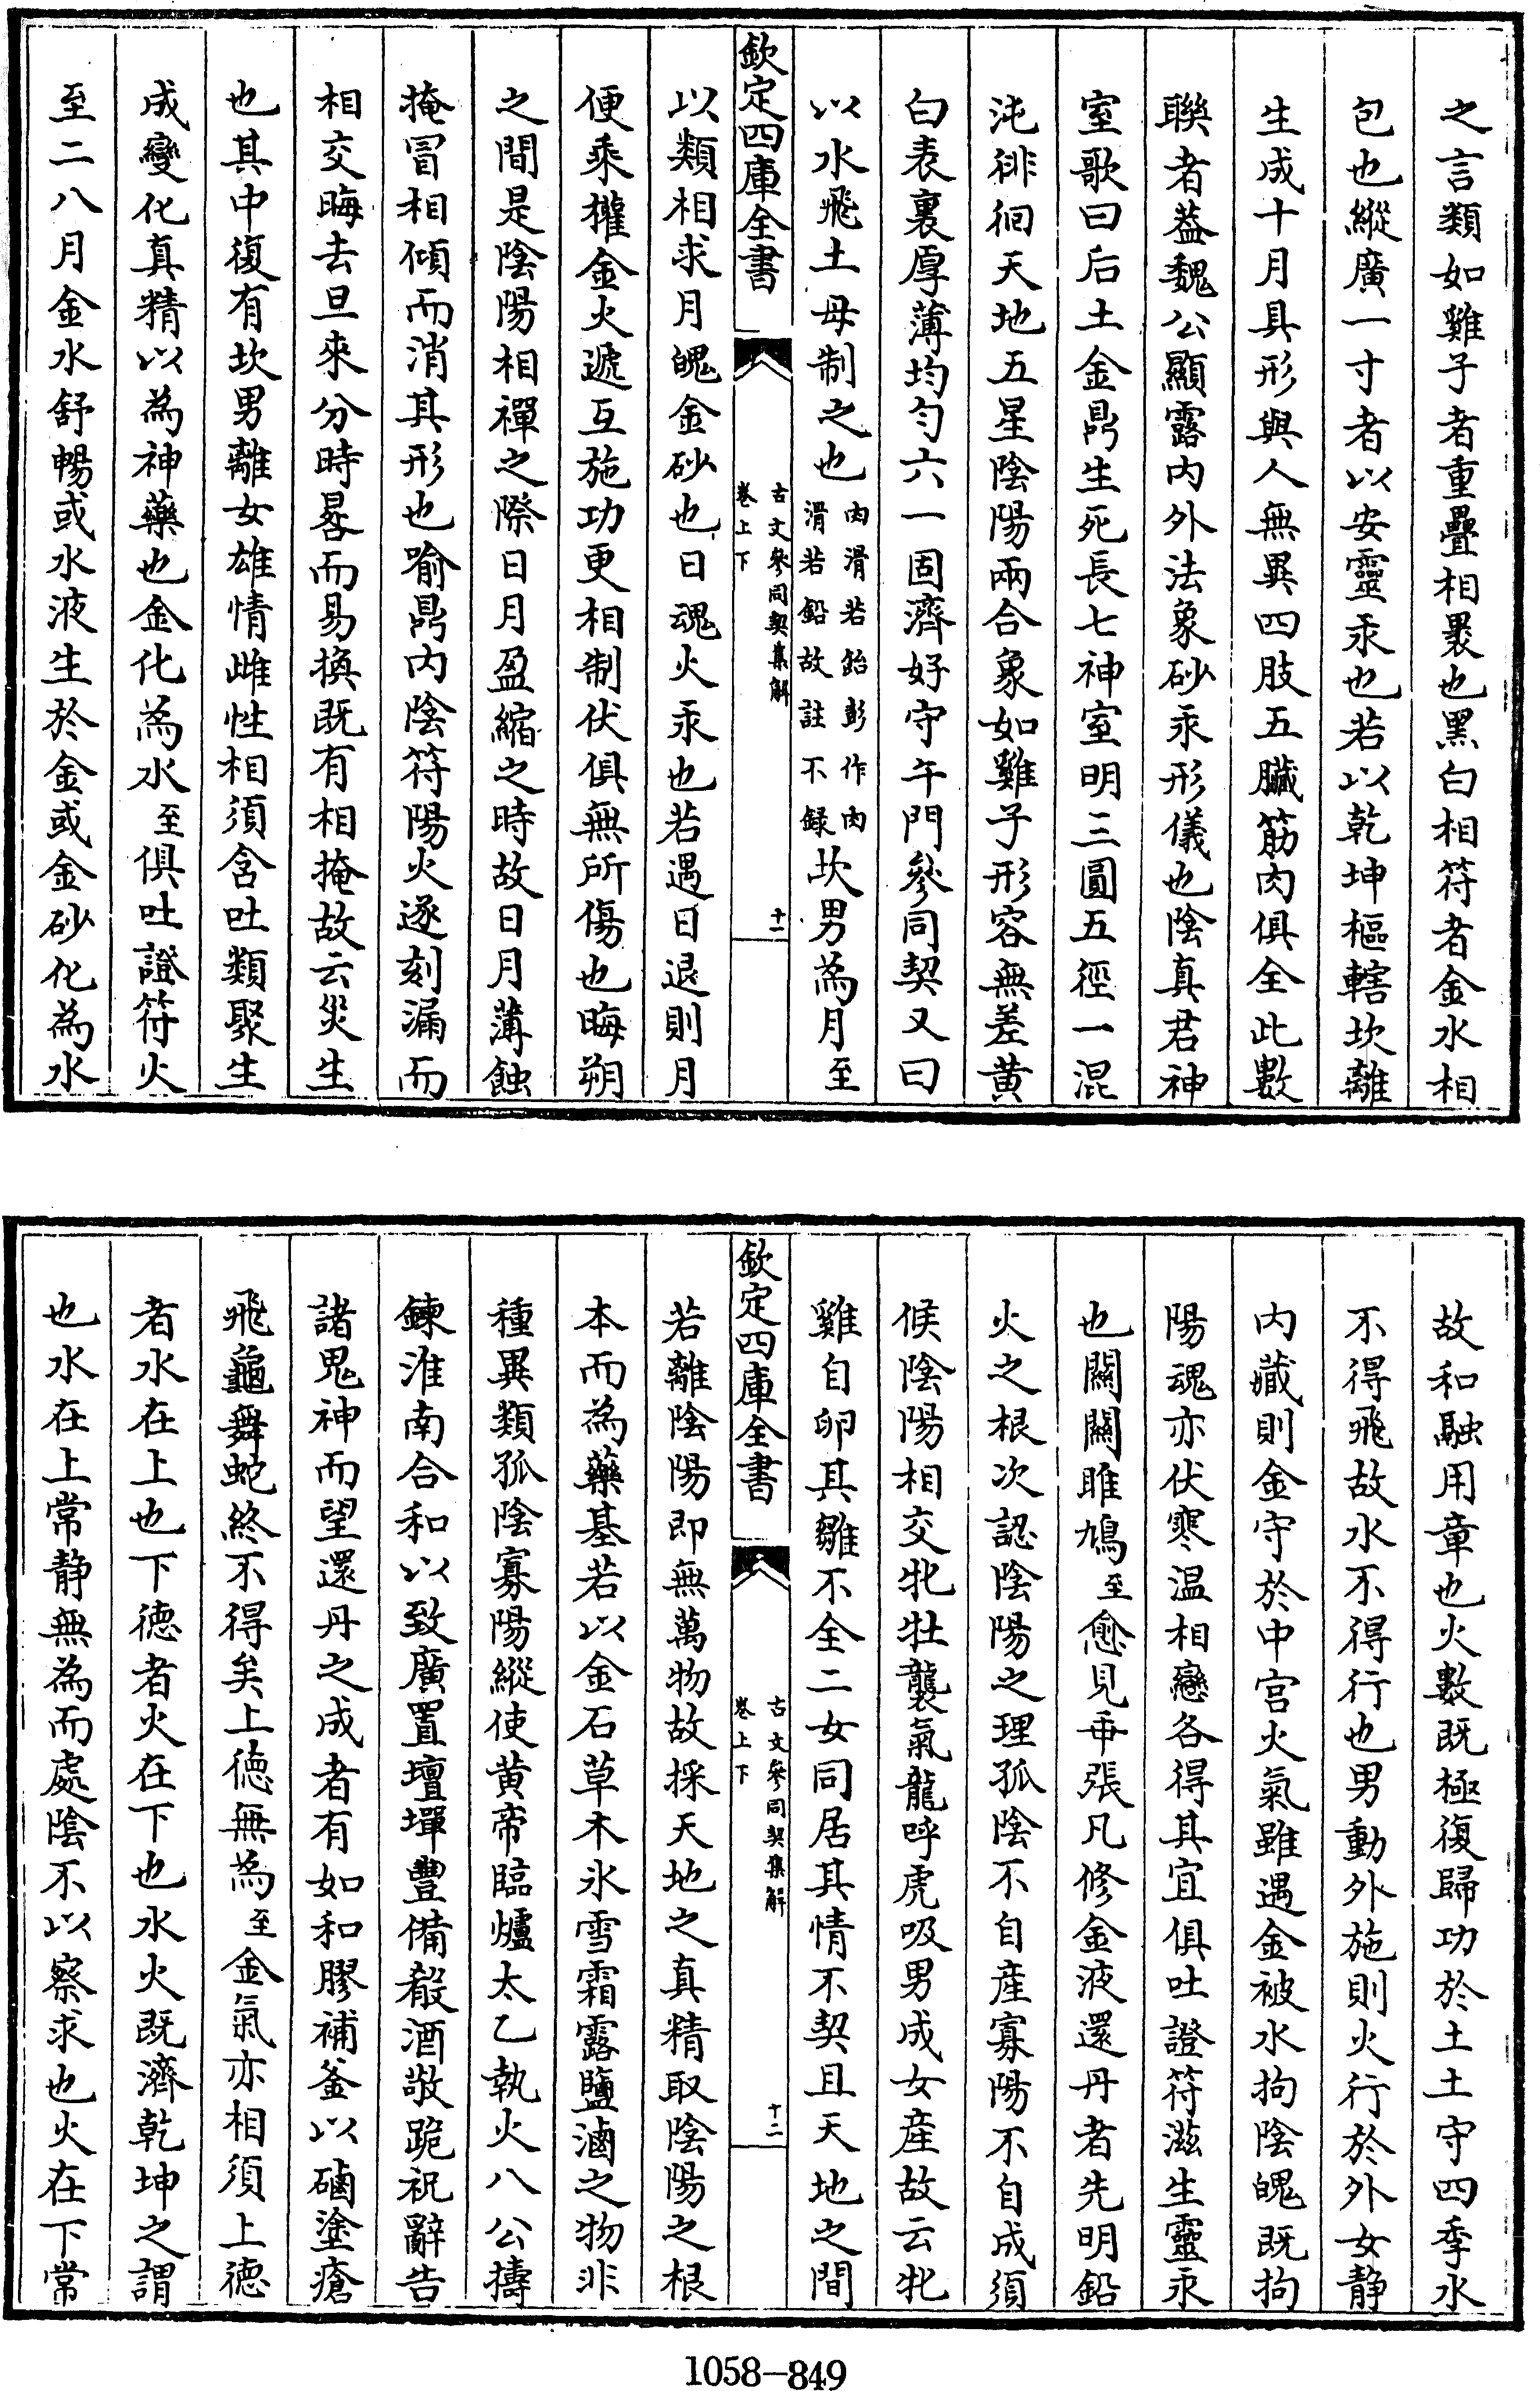 之言類如雞子者重疊相裹也黑白相符者金水相
包也縱廣一寸者以安靈汞也若以乾坤樞轄坎離
生成十月具形與人無異四肢五臟筋肉俱全此數
聯者葢魏公顯露内外法象砂汞形儀也陰真君神
室歌曰后土金鼎生死長七神室明三圓五徑一混
沌徘徊天地五星陰陽兩合象如雞子形容無差黄
白表裏厚薄均勻六一固濟好守午門參同契又曰
以水飛土母制之也肉滑若飴彭作肉滑若鉛故註不録坎男為月至
欽定四庫全書
古文參同契集解
卷上下
十一
以類相求月魄金砂也日魂火汞也若遇日退則月
便乘權金火遞互施功更相制伏俱無所傷也晦朔
之間是陰陽相禪之際日月盈縮之時故日月薄蝕
掩冒相傾而消其形也喻鼎内陰符陽火逐刻漏而
相交晦去旦來分時晷而易換既有相掩故云災生
也其中復有坎男離女雄情雌性相須含吐類聚生
成變化真精以為神藥也金化為水至俱吐證符火
至二八月金水舒暢或水液生於金或金砂化為水
故和融用章也火數既極復歸功於土土守四季水
不得飛故水不得行也男動外施則火行於外女静
内藏則金守於中宫火氣雖遇金被水拘陰魄既拘
陽魂亦伏寒温相戀各得其宜俱吐證符滋生靈汞
也關關雎鳩至愈見乖張凡修金液還丹者先明鉛
火之根次認陰陽之理孤陰不自産寡陽不自成須
候陰陽相交牝牡襲氣龍呼虎吸男成女産故云牝
雞自卵其雛不全二女同居其情不契且天地之間
欽定四庫全書
古文參同契集解
卷上下
十二
若離陰陽即無萬物故採天地之真精取陰陽之根
本而為藥基若以金石草木氷雪霜露鹽滷之物非
種異類孤陰寡陽縱使黄帝臨爐太乙執火八公擣
鍊淮南合和以致廣置壇墠豐備殽酒敬跪祝辭告
諸鬼神而望還丹之成者有如和膠補釜以硇塗瘡
飛龜舞蛇終不得矣上徳無為至金氣亦相須上徳
者水在上也下徳者火在下也水火既濟乾坤之謂
也水在上常静無為而處陰不以察求也火在下常
1058-849